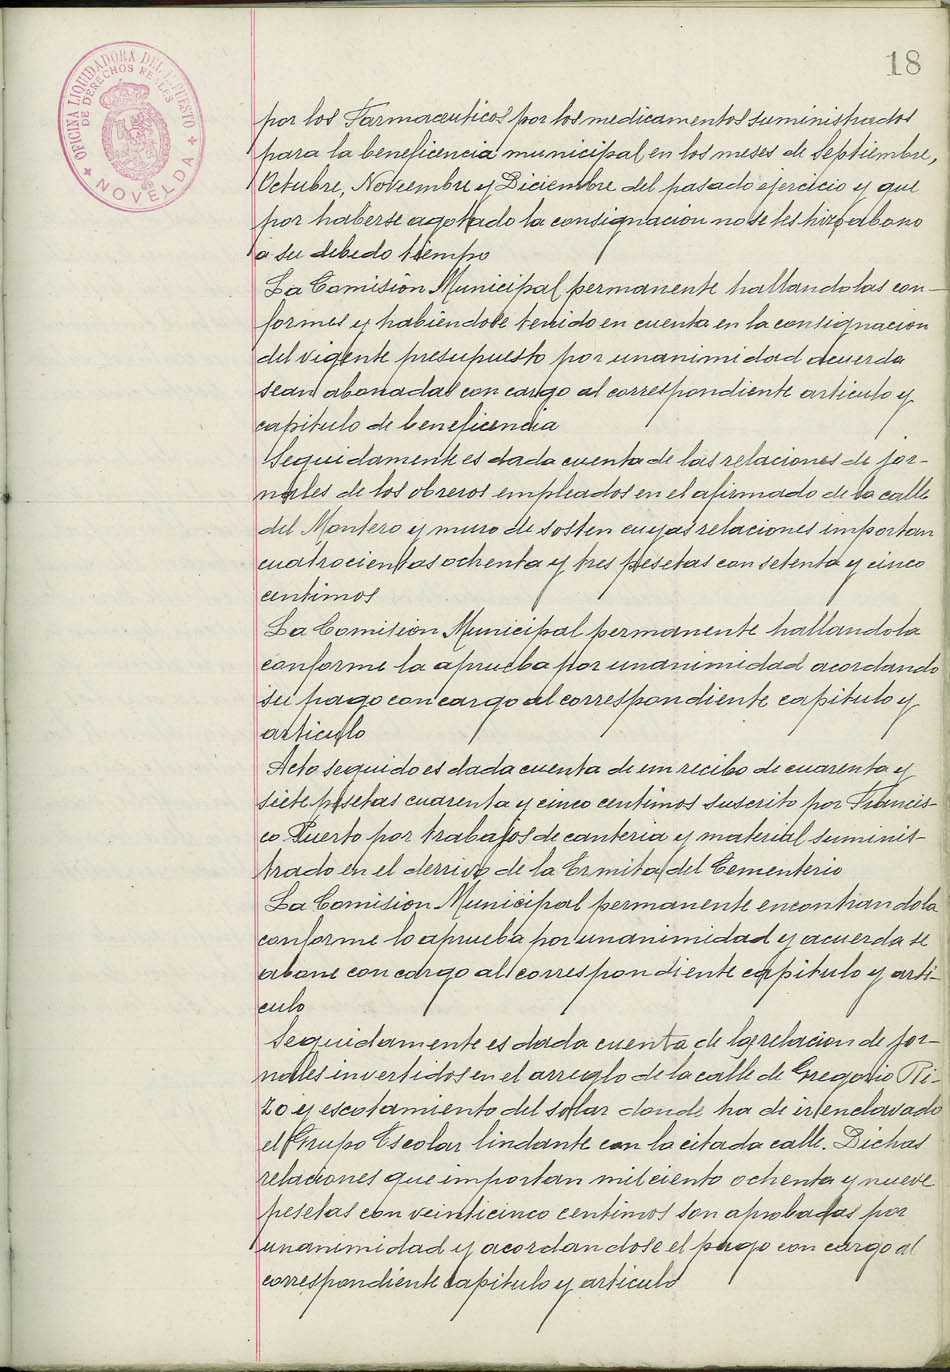 18
OFICINA LIQUIDADORA DEL IMPUESTO
DE DERECHOS REALES
NOVELDA
por los Farmaceuticos por los medicamentos suministrados
para la beneficencia municipal en los meses de Septiembre,
Octubre, Noviembre y Diciembre del pasado ejercicio y que
por haberse agotado la consignacion no se les hizo abono
a su debido tiempo
La Comisión Municipal permanente hallandolas con-
formes y habiendose tenido en cuenta en la consignacion
del vigente presupuesto por unanimidad acuerda
sean abonadas con cargo al correspondiente articulo y
capitulo de beneficencia
Seguidamente es dada cuenta de las relaciones de jor-
nales de los obreros empleados en el afirmado de la calle
del Montero y muro de sosten cuyas relaciones importan
cuatrocientas ochenta y tres pesetas con setenta y cinco
centimos
La Comisión Municipal permanente hallandola
conforme la aprueba por unanimidad acordando
su pago con cargo al correspondiente capitulo y
articulo
Acto seguido es dada cuenta de un recibo de cuarenta y
siete pesetas cuarenta y cinco centimos suscrito por Francis-
co Puerto por trabajos de canteria y material suminis-
trado en el derrivo de la Ermita del Cementerio
La Comisión Municipal permanente encontrandola
conforme lo aprueba por unanimidad y acuerda se
abone con cargo al correspondiente capitulo y arti-
culo
Seguidamente es dada cuenta de la relacion de jor-
nales invertidos en el arreglo de la calle de Gregorio Ri-
zo y escotamiento del solar donde ha de ir enclavado
el Grupo Escolar lindante con la citada calle. Dichas
relaciones que importan mil ciento ochenta y nueve
pesetas con veinticinco centimos son aprobadas por
unanimidad y acordandose el pago con cargo al
correspondiente capitulo y articulo